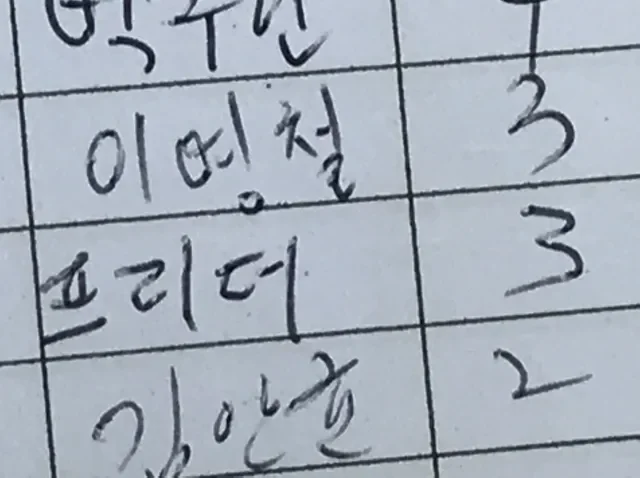 이영철 3
프리더 3
김안홀 2